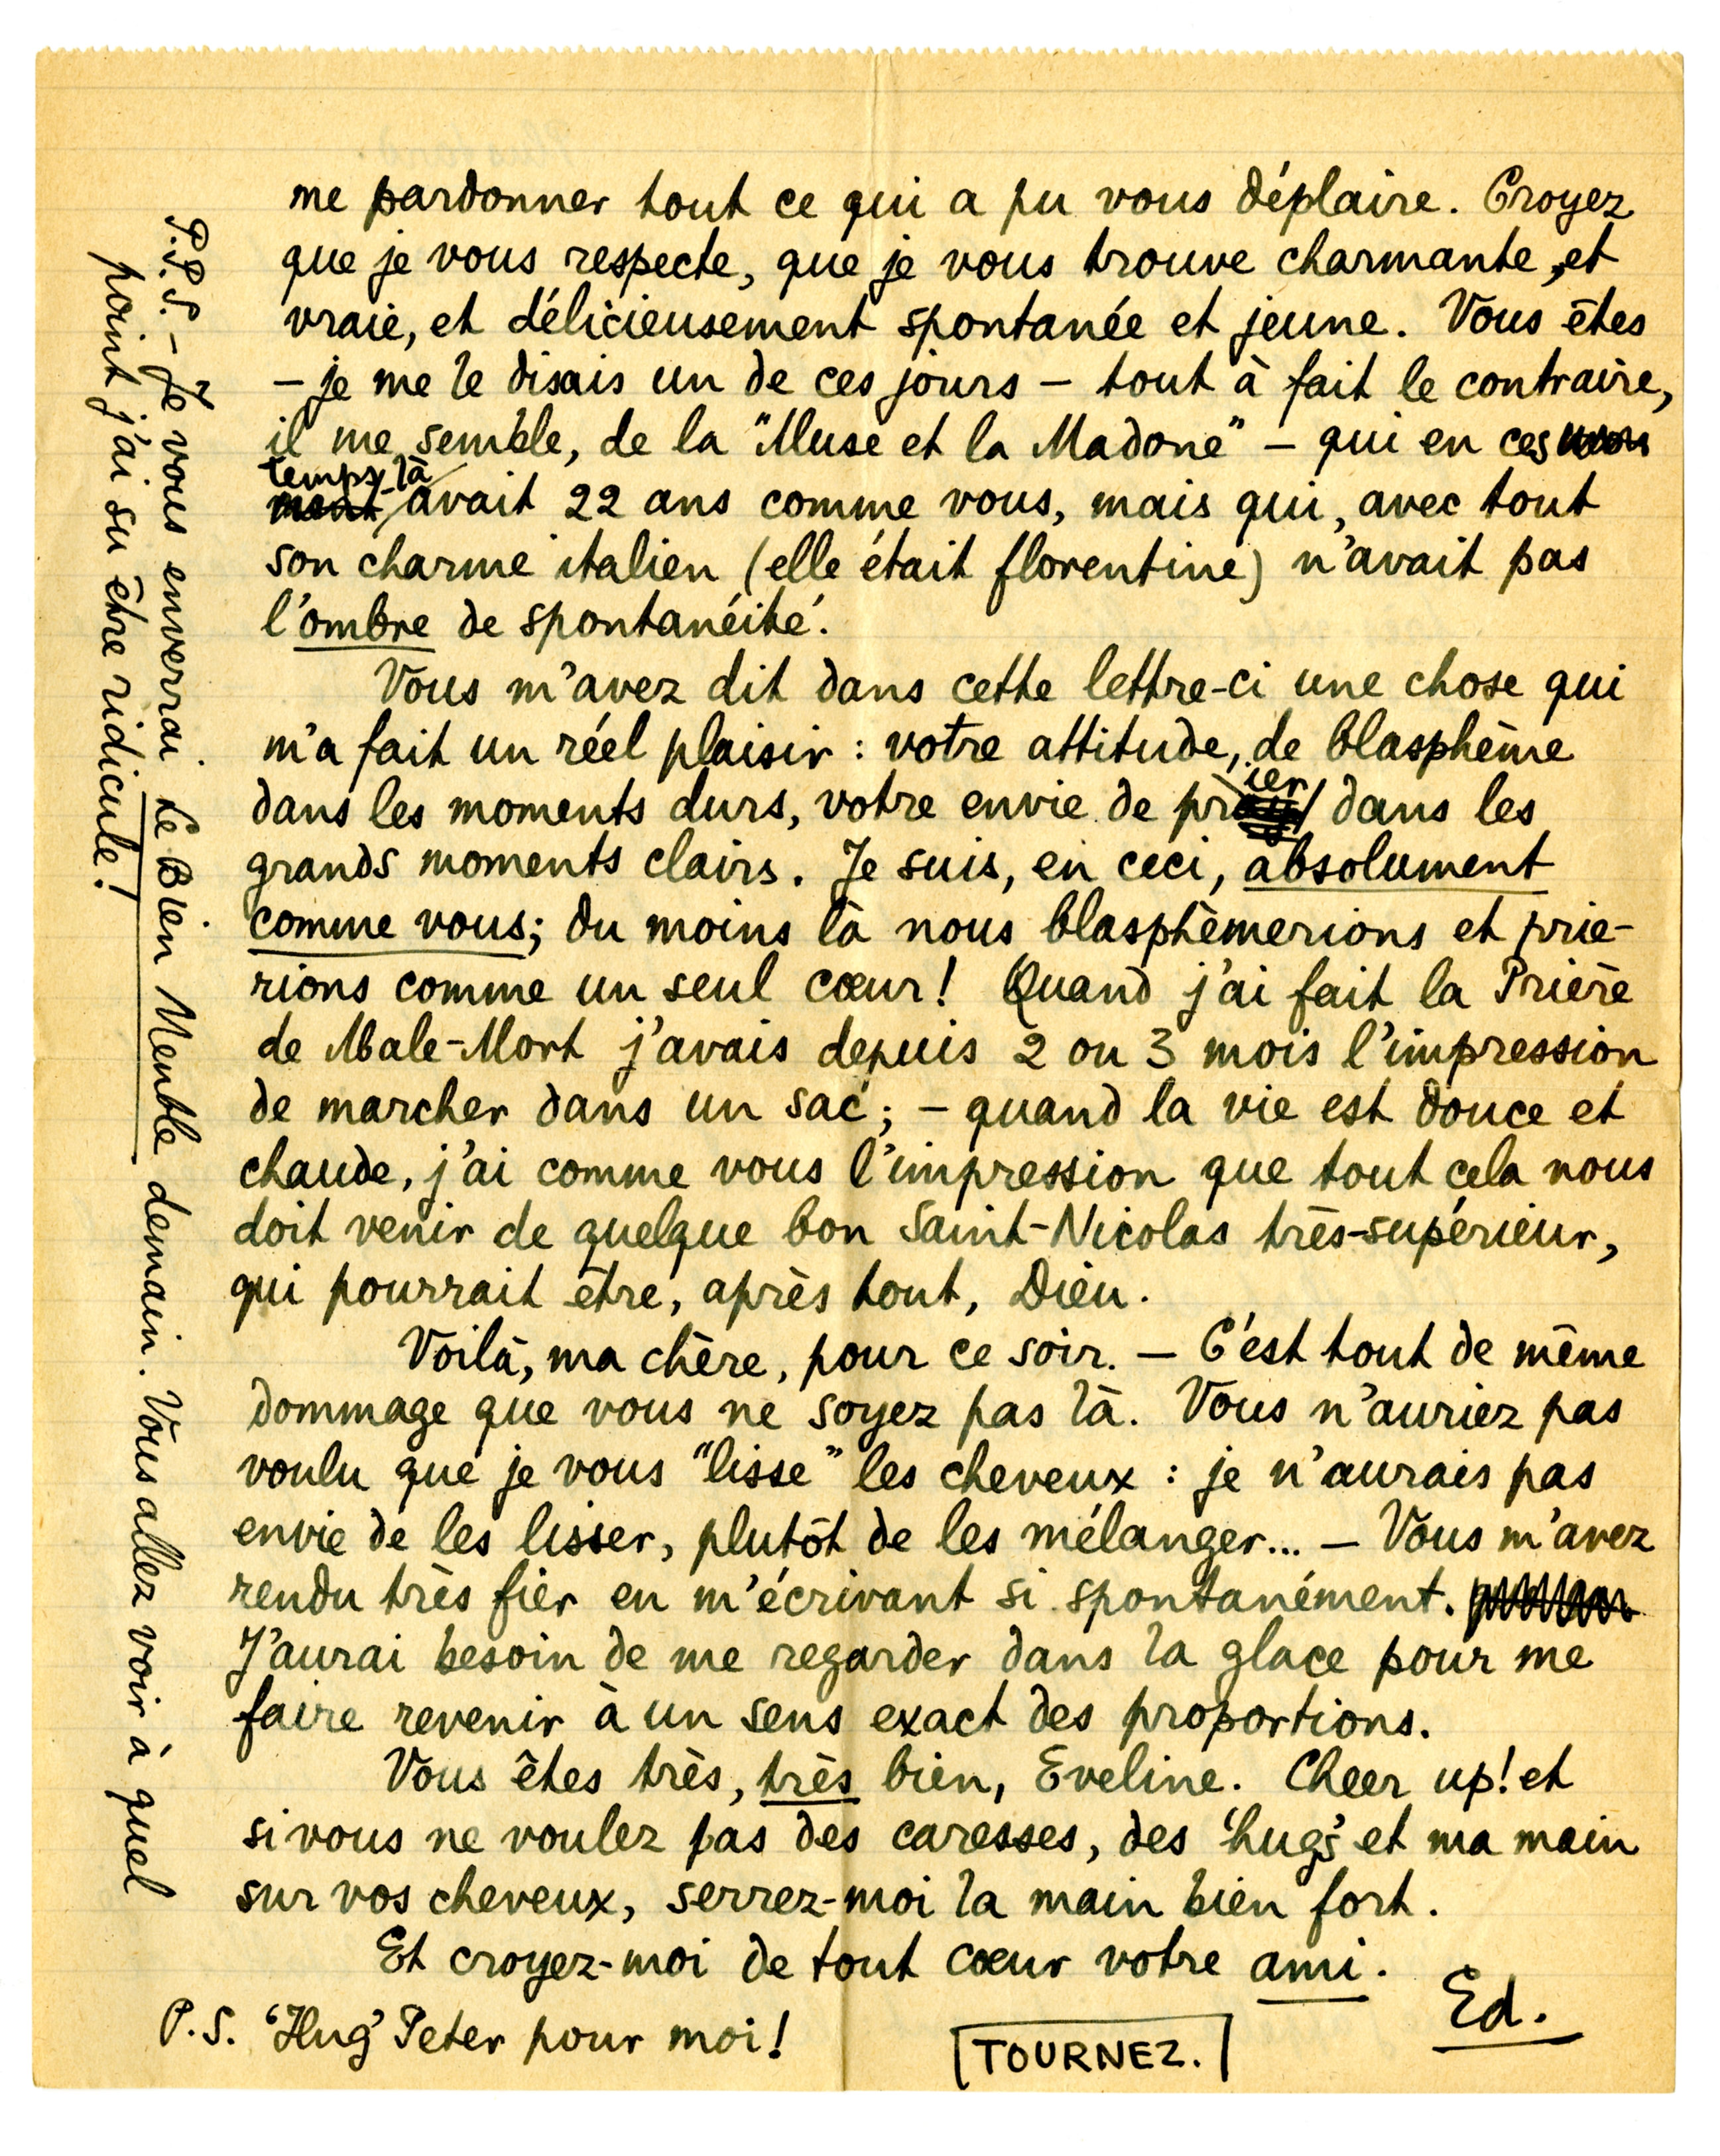 me pardonner tout ce qui a pu vous déplaire. Croyez
que je vous respecte, que je vous trouve charmante, et
vraie, et délicieusement spontanée et jeune. Vous êtes
– je me le disais un de ces jours – tout à fait le contraire,
il me semble, de la "Muse et la Madone" – qui en ces
temps-là avait 22 ans comme vous, mais qui, avec tout
son charme italien (elle était florentine) n'avait pas
l'ombre de spontanéité.
Vous m'avez dit dans cette lettre-ci une chose qui
m'a fait un réel plaisir : votre attitude, de blasphème
dans les moments durs, votre envie de prier dans les
grands moments clairs. Je suis, en ceci, absolument
comme vous; du moins là nous blasphèmerions et prie-
rions comme un seul cœur! Quand j'ai fait la Prière
de Male-Mort j'avais depuis 2 ou 3 mois l'impression
de marcher dans un sac; – quand la vie est douce et
chaude, j'ai comme vous l'impression que tout cela nous
doit venir de quelque bon Saint-Nicolas très-supérieur,
qui pourrait être, après tout, Dieu.
Voilà, ma chère, pour ce soir. – C'est tout de même
dommage que vous ne soyez pas là. Vous n'auriez pas
voulu que je vous "lisse" les cheveux : je n'aurais pas
envie de les lisser, plutôt de les mélanger... – Vous m'avez
rendu très fier en m'écrivant si spontanément.
J'aurai besoin de me regarder dans la glace pour me
faire revenir à un sens exact des proportions.
Vous êtes très, très bien, Eveline. Cheer up! et
si vous ne voulez pas des caresses, des 'hugs' et ma main
sur vos cheveux, serrez-moi la main bien fort.
Et croyez-moi de tout cœur votre ami.
Ed.
P.S. 'Hug' Peter pour moi!
TOURNEZ.
P.P.S. – Je vous enverrai Le Bien Meuble demain. Vous allez voir à quel
point j'ai su être ridicule!